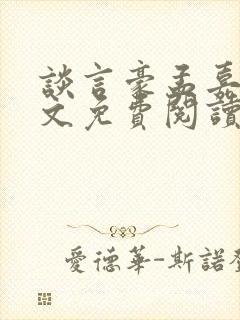 談言豪孟嘉
文免費閱讀
愛德華-斯諾登